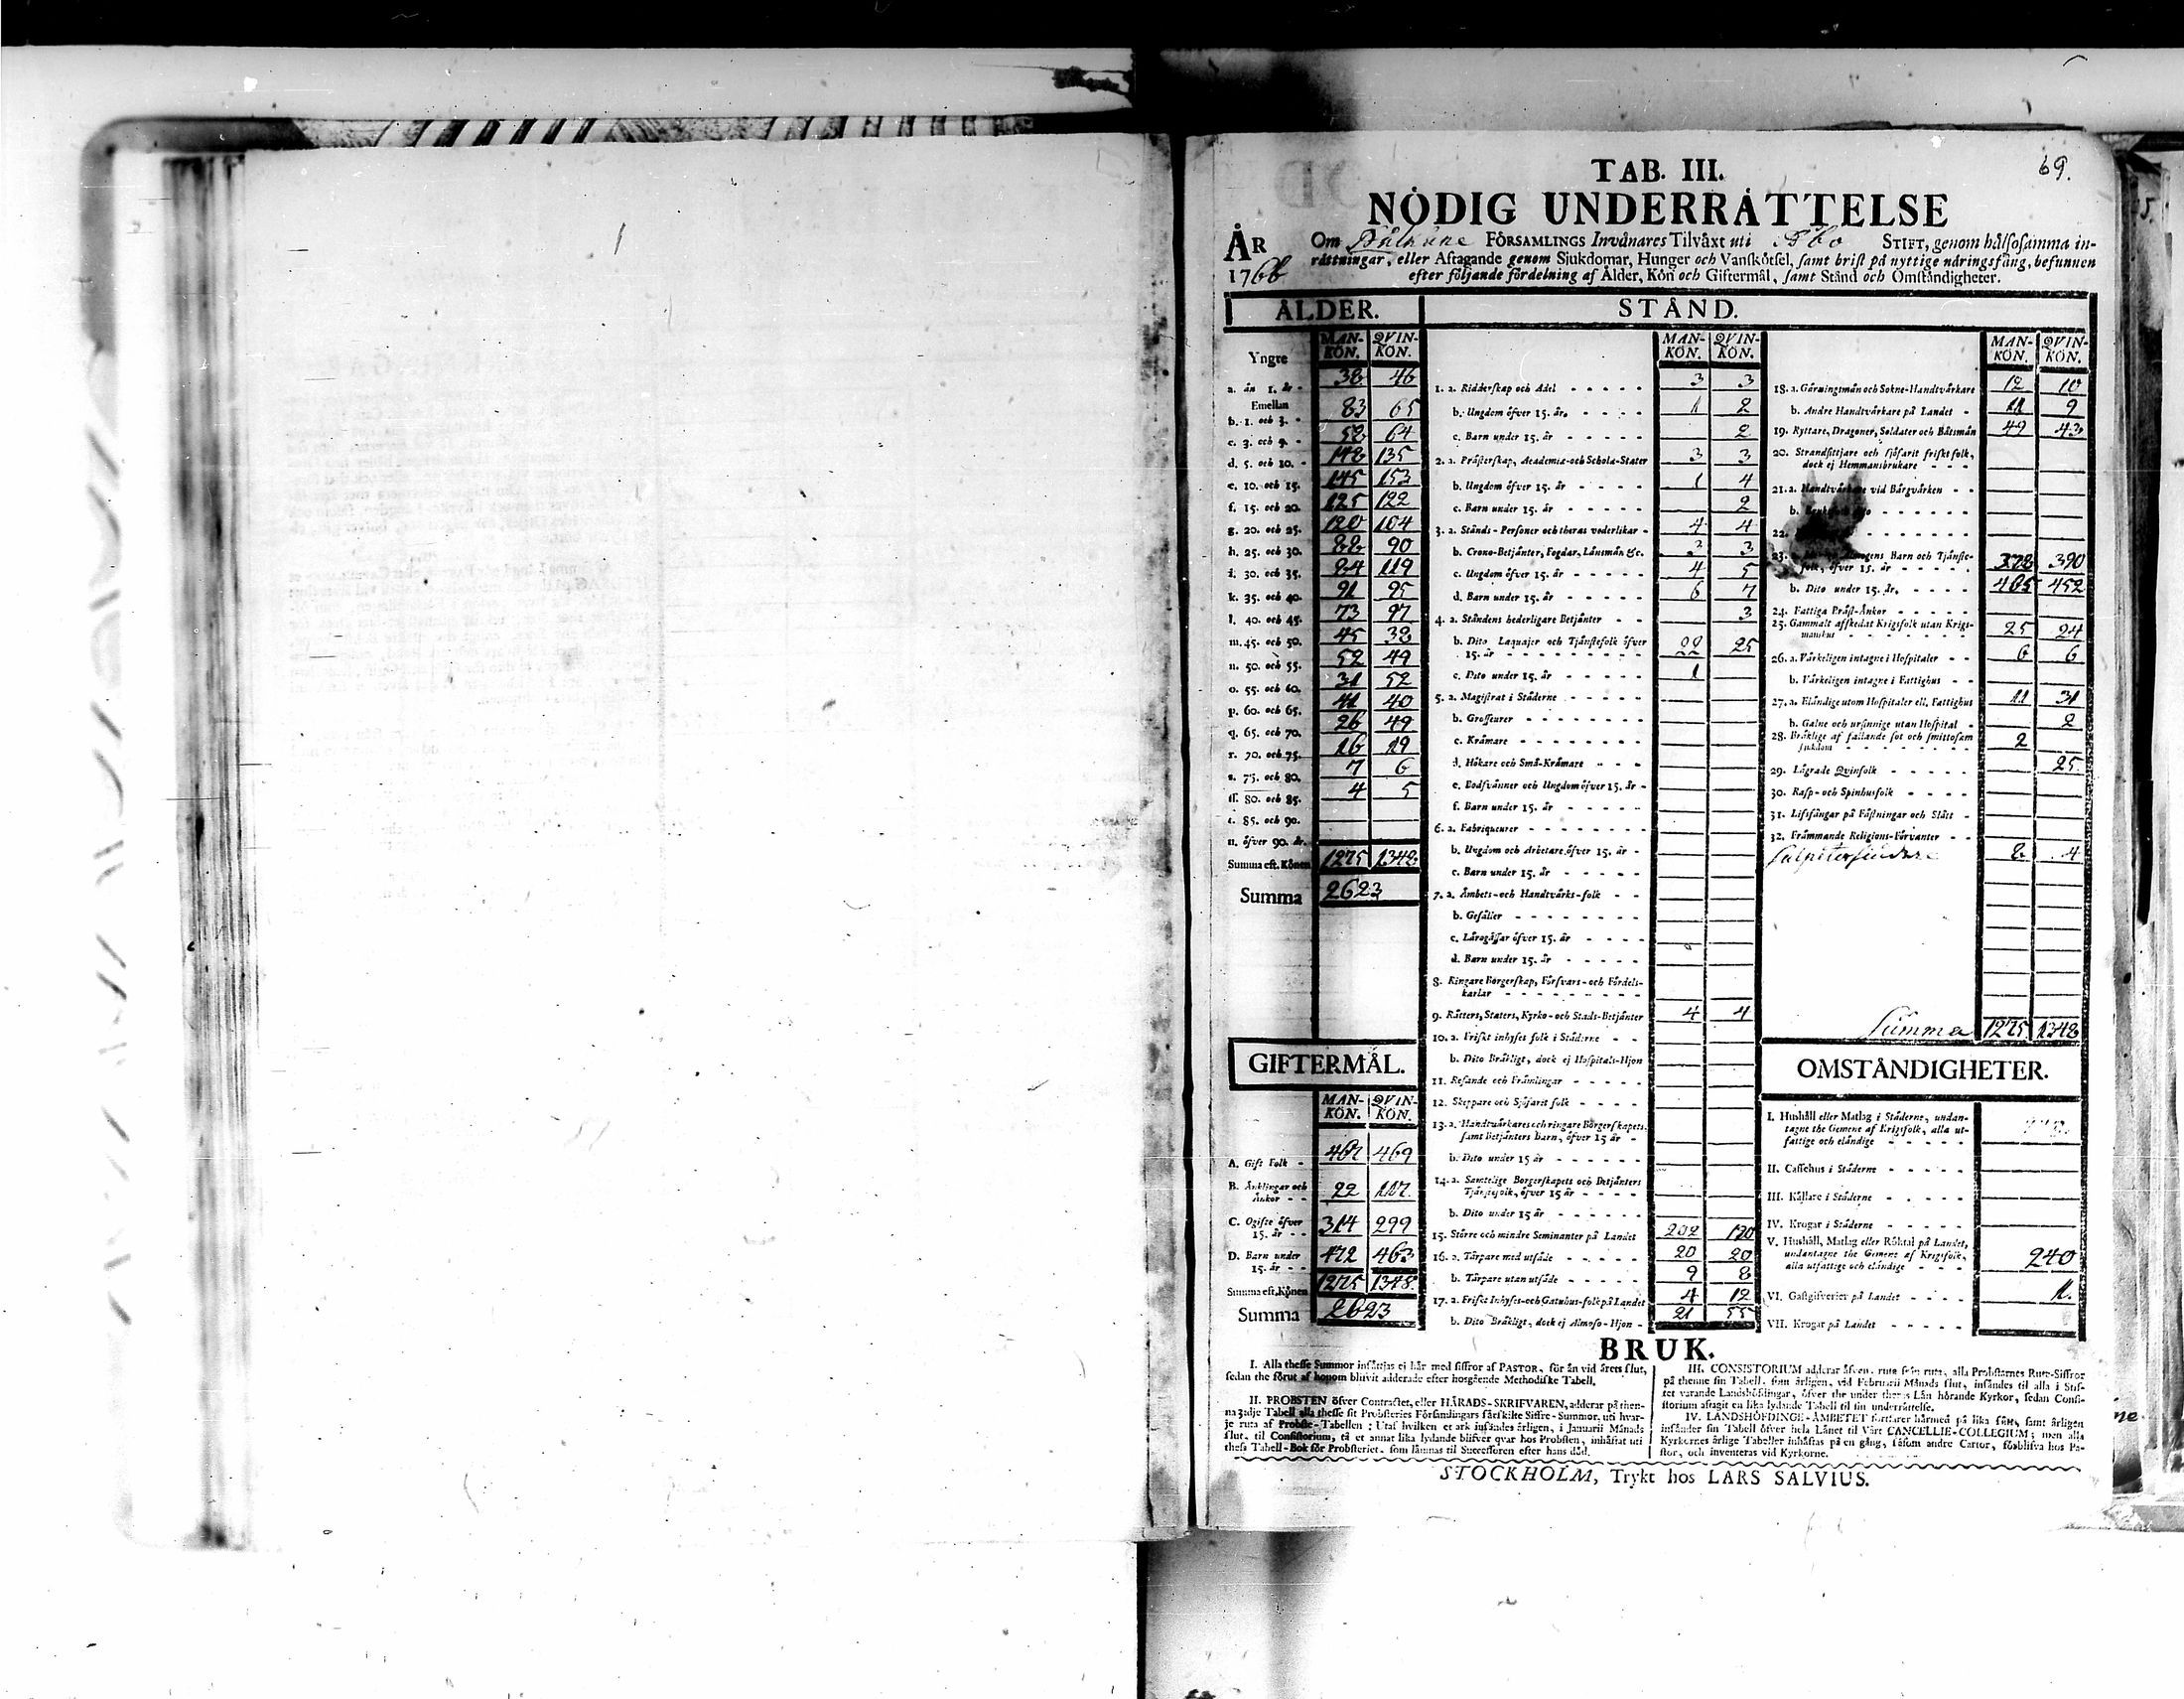 69.
TAB. III.
NÖDIG UNDERRÄTTELSE
ÅR 1766
Om Pälkäne FÖRSAMLINGS Invånares Tilväxt uti Åbo STIFT, genom hälsosamma in-
rättningar, eller Aftagande genom Sjukdomar, Hunger och Vanskötsel, samt brist på nyttige näringsfång, befunnen
efter följande fördelning af Ålder, Kön och Giftermål, samt Stånd och Omständigheter.
ÅLDER.
Yngre MAN-KÖN. QVIN-KÖN.
a. än 1. år - 38 46
Emellan
b. 1. och 3. - 83 65
c. 3. och 5. - 52 64
d. 5. och 10. - 148 135
e. 10. och 15. 145 153
f. 15. och 20. 125 122
g. 20. och 25. 120 104
h. 25. och 30. 88 90
i. 30. och 35. 84 119
k. 35. och 40. 91 95
l. 40. och 45. 73 97
m. 45. och 50. 45 38
n. 50. och 55. 52 49
o. 55. och 60. 31 52
p. 60. och 65. 41 40
q. 65. och 70. 26 49
r. 70. och 75. 16 19
s. 75. och 80. 7 6
ss. 80. och 85. 4 5
t. 85. och 90.
u. öfver 90. år.
Summa eft. Könen 1275 1348
Summa 2623
GIFTERMÅL.
MAN-KÖN. QVIN-KÖN.
A. Gift Folk - 467 469
B. Änklingar och Änkor - - 22 117.
C. Ogifte öfver 15. år - - 314 299
D. Barn under 15. år - - 472 463
Summa eft. Könen 1275 1348.
Summa 2623
STÅND.
MAN-KÖN. QVIN-KÖN.
1. a. Ridderskap och Adel - - - - - 3 3
b. Ungdom öfver 15. år. - - - - 1 2
c. Barn under 15. år - - - - - 2
2. a. Prästerskap, Academiæ-och Schola-Stater 3 3
b. Ungdom öfver 15. år - - - - 1 4
c. Barn under 15. år - - - - - 2
3. a. Stånds-Personer och theras vederlikar - 4 4
b. Crono-Betjänter, Fogdar, Länsmän &c. 3 3
c. Ungdom öfver 15. år - - - - 4 5
d. Barn under 15. år - - - - - 6 7
4. a. Ståndens hederligare Betjänter - - 3
b. Dito, Laquajer och Tjänstefolk öfver
15. år - - - - - - - - - 22 25
c. Dito under 15. år - - - - - 1
5. a. Magistrat i Städerne - - - - -
b. Grosseurer - - - - - - - -
c. Krämare - - - - - - - -
d. Hökare och Små-Krämare - - -
e. Bodsvänner och Ungdom öfver 15. år -
f. Barn under 15. år - - - - -
6. a. Fabriqueurer - - - - - - - -
b. Ungdom och Arbetare öfver 15. år -
c. Barn under 15. år - - - - -
7. a. Ämbets-och Handtvärks-folk - -
b. Gesäller - - - - - - - -
c. Lärogåssar öfver 15. år - - - -
d. Barn under 15. år - - - - -
8. Ringare Borgerskap, Försvars-och Fördels-
karlar - - - - - - - - -
9. Rätters, Staters, Kyrko-och Stads-Betjänter 4 4
10. a. Friskt inhyses folk i Städerne - -
b. Dito Bräkligt, dock ej Hospitals-Hjon
11. Resande och Främlingar - - - - -
12. Skeppare och Sjöfarit folk - - - -
13. a. Handtvärkares och ringare Borgerskapets
samt Betjänters Barn, öfver 15 år -
b. Dito under 15 år - - - - - -
14. a. Samtelige Borgerskapets och Betjänters
Tjänstefolk, öfver 15 år - - - -
b. Dito under 15 år - - - - - -
15. Större och mindre Hemmanter på Landet 202 180
16. a. Torpare med utsäde - - - - 20 20
b. Torpare utan utsäde - - - - - 9 8
17. a. Friskt Inhyses-och Gatuhus-folk på Landet 4 12
b. Dito Bräkligt, dock ej Almoso-Hjon - 21 55
MAN-KÖN. QVIN-KÖN.
18. a. Gärningsmän och Sokne-Handtvärkare 12 10
b. Andre Handtvärkare på Landet - 11 9
19. Ryttare, Dragoner, Soldater och Båtsmän 49 43
20. Strandsittjare och sjöfarit friskt folk,
dock ej Hemmansbrukare - - -
21. a. Handtvärkare vid Bärgvärken - -
b.
22.
23. Barn och Tjänste-
folk, öfver 15. år - - - - - 378 390
b. Dito under 15. år. - - - - 465 452
24. Fattiga Präst-Änkor - - - - -
25. Gammalt afskedat Krigsfolk utan Krigs-
manshus - - - - - - - - 25 24
26. a. Värkeligen intagne i Hospitaler - - 6 6
b. Värkeligen intagne i Fattighus - -
27. a. Eländige utom Hospitaler ell. Fattighus 11 31
b. Galne och ursinnige utan Hospital - 2
28. Bräklige af fallande sot och smittosam
sjukdom - - - - - - - - 2
29. Lägrade Qvinfolk - - - - - 25
30. Rasp-och Spinhusfolk - - - -
31. Lifsfångar på Fästningar och Slått -
32. Främmande Religions-Förvanter - -
Salpetersiudare 8 4
Summa 1275 1348
OMSTÄNDIGHETER.
I. Hushåll eller Matlag i Städerne, undan-
tagne the Gemene af Krigsfolk, alla ut-
fattige och eländige - - - - -
II. Caffehus i Städerne - - - -
III. Källare i Städerne - - - - -
IV. Krogar i Städerne - - - -
V. Hushåll, Matlag eller Röktal på Landet,
undantagne the Gemene af Krigsfolk,
alla utfattige och eländige - - - 240
VI. Gästgifverier på Landet - - - - 1.
VII. Krogar på Landet - - - - -
BRUK.
I. Alla thesse Summor insättjas ej här med siffror af PASTOR, för än vid årets slut,
sedan the förut af honom blifvit adderade efter hosgående Methodiske Tabell.
II. PROBSTEN öfver Contractet, eller HÄRADS-SKRIFVAREN, adderar på then-
na 3:dje Tabell alla thesse sit Probsteries Församlingars särskilte Siffre-Summor, uti hvar-
je ruta af Probste-Tabellen: Utaf hvilken et ark insändes årligen, i Januarii Månads
slut, til Consistorium, tå et annat lika lydande blifver qvar hos Probsten, inhäftat uti
thess Tabell-Bok för Probsteriet, som lämnas til Successoren efter hans död.
III. CONSISTORIUM adderar äfven, ruta från ruta, alla Probstarnes Rute-Siffror
på thenne sin Tabell, som årligen, vid Februarii Månads slut, insändes til alla i Stif-
tet varande Landshöfdingar, öfver the under theras Län hörande Kyrkor, sedan Consi-
storium aftagit en lika lydande Tabell til sin underrättelse.
IV. LANDSHÖFDINGE-ÄMBETET fortfarer härmed på lika sätt, samt årligen
insänder sin Tabell öfver hela Länet til Vårt CANCELLIE-COLLEGIUM; men alla
Kyrkornes årlige Tabeller inhäftas på en gång, såsom andre Cartor, förblifva hos Pa-
stor, och inventeras vid Kyrkorne.
STOCKHOLM, Trykt hos LARS SALVIUS.